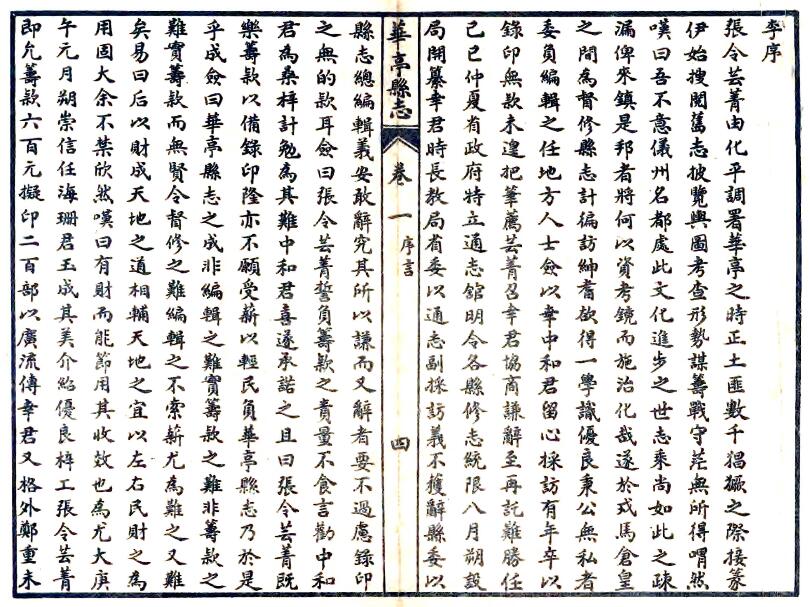 李序
張令芸菁由化平調署華亭之時正土匪數千猖獗之際接篆
伊始搜閱舊志披覽輿圖考查形勢謀籌戰守茫無所得喟然
嘆曰吾不意儀州名都處此文化進步之世志乘尚如此之疎
漏俾來鎮是邦者將何以資考鏡而施治化哉遂於戎馬倉皇
之間為督修縣志計徧訪紳耆欲得一學識優良秉公無私者
委負編輯之任地方人士僉以幸中和君留心採訪有年卒以
錄印無款未遑把筆薦芸菁召幸君協商謙辭至再託難勝任
己巳仲夏省政府特立通志舘明令各縣修志統限八月朔設
局開纂幸君時長教局省委以通志副採訪義不獲辭縣委以
華亭縣志 卷一 序言 四
縣志總編輯義安敢辭究其所以謙而又辭者要不過慮錄印
之無的款耳僉曰張令芸菁誓負籌款之責量不食言勸中和
君為桑梓計勉為其難中和君喜遂承諾之且曰張令芸菁既
樂籌款以備錄印隆亦不願受薪以輕民負華亭縣志乃於是
乎成僉曰華亭縣志之成非編輯之難實籌款之難非籌款之
難實籌款而無賢令督修之難編輯之不索薪尤為難之又難
矣易曰后以財成天地之道相輔天地之宜以左右民財之為
用固大余不禁欣然嘆曰有財而能節用其收效也為尤大庚
午元月朔崇信任海珊君玉成其美介紹優良梓工張令芸菁
即允籌款六百元擬印二百部以廣流傳幸君又格外鄭重未